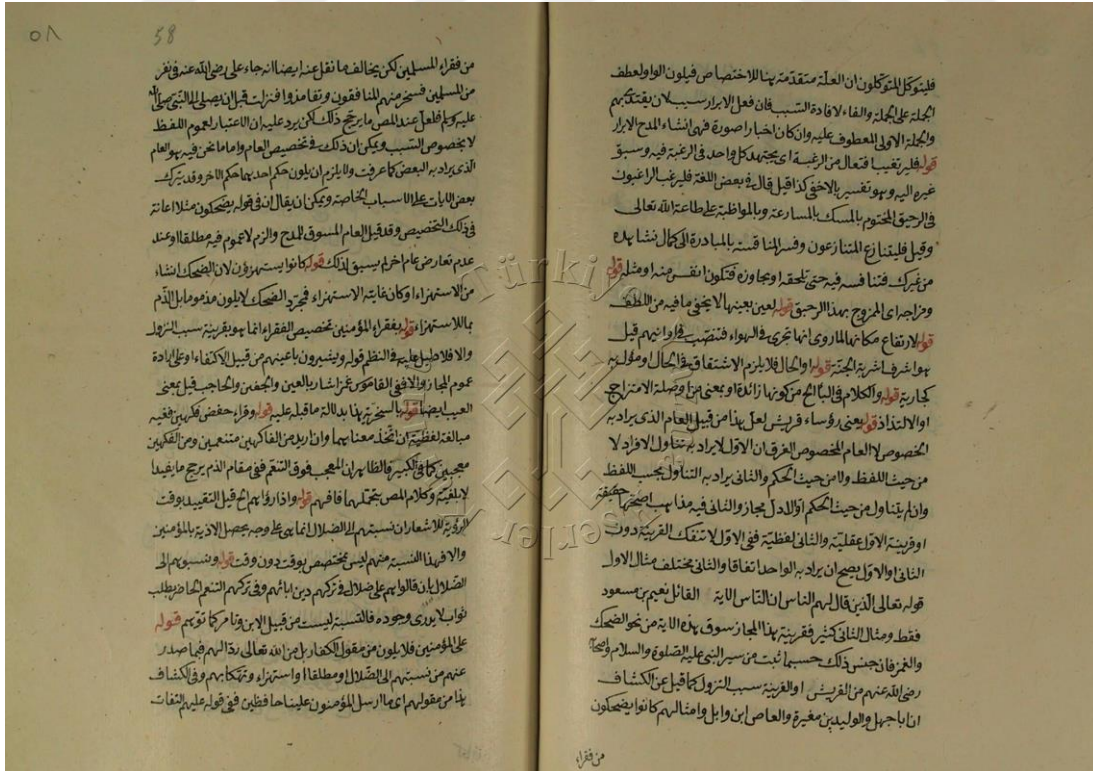 فليتوكل المتوكلون ان العلة متقدمة هنا للاختصاص فيلون الواو لعطف
الجملة على الجملة والفاء لافادة التسبب فان فعل الابرار سبب لان يقتدى بهم
والجملة الاولى المعطوف عليه وان كان اخبارا صورة فهى انشاء المدح الابرار
قوله فليرتغيب افتعال من الرغبة اى يجتهد كل واحد فى الرغبة فيه وسبق
غيره اليه وهو تفسير بالاخفى كذا قيل قال فى بعض اللغة فليرغب الراغبون
فى الرحيق المختوم بالمسك بالمسارعة وبالمواظبة على طاعة الله تعالى
وقيل فليتنازع المتنازعون وفسر المنافسة بالمبادرة الى كمال تشاهده
من غيرك فتنافسه فيه حتى تلحقه او تجاوزه فتكون انفس منه او مثله قوله
ومزاجه اى الممزوج بهذا الرحيق قوله لعين بعينها لا يخفى ما فيه من اللطف
قوله لارتفاع مكانها لما روى انها تجرى فى الهواء فتنصب فى اوانيهم قيل
هو اشرف اشربة الجنة قوله او الحال فلا يلزم الاشتقاق فى الحال او مؤل به
كجارية قوله والكلام فى الباء الخ من كونها زائدة او بمعنى من او صلة الامتزاج
او الالتذاذ قوله يعنى رؤساء قريش لعل هذا من قبيل العام الذى يراد به
الخصوص لا العام المخصوص الفرق ان الاول لا يراد به تناول الافراد لا
من حيث اللفظ ولا من حيث الحكم والثانى يراد به التناول بحسب اللفظ
وان لم يتناول من حيث الحكم او الاول مجاز والثانى فيه مذاهب اصحها حقيقة
او قرينة الاول عقلية والثانى لفظية ففى الاول لا تنفك القرينة دون
الثانى او الاول يصح ان يراد به الواحد اتفاقا والثانى مختلف مثال الاول
قوله تعالى الذين قال لهم الناس ان الناس الاية القائل نعيم بن مسعود
فقط ومثال الثانى كثير فقرينة هذا المجاز سوق هذه الاية من نحو الضحك
والغمز فان جنس ذلك حسبما ثبت من سير النبى عليه الصلوة والسلام واصحابه
رضى الله عنهم من القريش او القرينة سبب النزول كما قيل عن الكشاف
ان ابا جهل والوليد بن مغيرة والعاص ابن وايل وامثالهم كانوا يضحكون
من فقراء
٥٨
58
من فقراء المسلمين لكن يخالف ما نقل عنه ايضا انه جاء على رضى الله عنه فى نفر
من المسلمين فسخر منهم المنافقون وتغامزوا فنزلت قبل ان يصلى الى النبى صلى الله
عليه وسلم فلعل عند المص ما يرجح ذلك لكن يرد عليه ان الاعتبار لعموم اللفظ
لا بخصوص السبب ويمكن ان ذلك فى تخصيص العام واما ما نحن فيه هو العام
الذى يراد به البعض كما عرفت ولا يلزم ان يلون حكم احدهما حكم الاخر وقد يترك
بعض الايات على الاسباب الخاصة ويمكن ان يقال ان فى قوله يضحكون مثلا اعانة
فى ذلك التخصيص وقد قيل العام المسوق للمدح والزم لا عموم فيه مطلقا او عند
عدم تعارض عام اخر لم يسبق لذلك قوله كانوا يستهزؤن لان الضحك انشاء
من الاستهزاء او كان غايته الاستهزاء فمجرد الضحك لا يلون مذموما بل الذم
بما للاستهزاء قوله بفقراء المؤمنين تخصيص الفقراء انما هو بقرينة سبب النزول
والا فلا دليل عليه فى النظم قوله ويشيرون باعينهم من قبيل الاكتفاء او على ارادة
عموم المجاز والا ففى القاموس غمز اشار بالعين والجفن والحاجب قيل بمعنى
العيب ايضا قوله بالسخرية بهذا بدلالة ما قبله عليه قوله وقراء حفص فكهين ففيه
مبالغة لفظية ان اتخذ معناهما وان اريد من الفاكهين متنعمين ومن الفكهين
معجبين كما فى الكبير فالظاهر ان المعجب فوق التنعم ففى مقام الذم يرجح ما يفيد
لابلغيته وكلام المص يحتملهما فافهم قوله واذا رؤاهم الخ قيل التقييد بوقت
الرؤية للاشعار ان نسبتهم الى الضلال انما هى على وجه يحصل الاذية بالمؤمنين
والا فهذا النسبة منهم ليس بمختص بوقت دون وقت قوله ونسبوهم الى
الضلال بان قالوا هم على ضلال فى تركهم دين ابائهم وفى تركهم التنعم الحاضر بطلب
ثواب لا يدرى وجوده فالنسبة ليست من قبيل الابن وتامر كما توهم قوله
على المؤمنين فلا يلون من مقول الكفار بل من الله تعالى ردا لهم فيما صدر
عنهم من نسبتهم الى الضلال او مطلقا او استهزاء وتهكما بهم وفى الكشاف
هذا من مقولهم اى ما ارسل المؤمنون علينا حافظين ففى قوله عليهم التفات
Türkiye
eserler